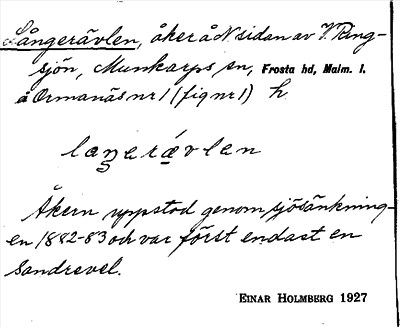 Långerävlen, åker å N sidan av V. Ring-
sjön, Munkarps sn, Frosta hd, Malm. l.
å Ormanäs nr 1 (fig nr 1) h.
laŋerǽvlen
Åkern uppstod genom sjösänkning-
en 1882-83 och var först endast en
Sandrevel.
EINAR HOLMBERG 1927